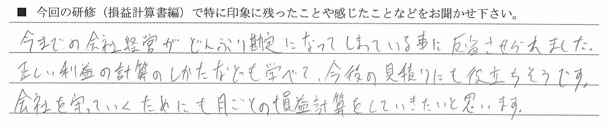 ■ 今回の研修（損益計算書編）で特に印象に残ったことや感じたことなどをお聞かせ下さい。
今までの会社経営がどんぶり勘定になってしまっている事に反省させられました。
正しい利益の計算のしかたなども学べて、今後の見積りにも役立ちそうです。
会社を守っていくためにも月ごとの損益計算をしていきたいと思います。